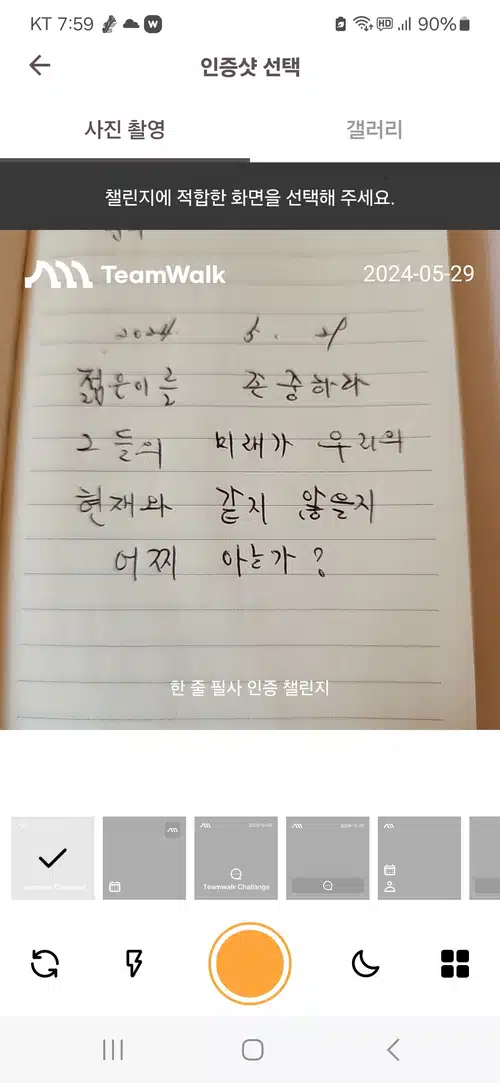 KT 7:59 W HD 90%
인증샷 선택
사진 촬영 갤러리
챌린지에 적합한 화면을 선택해 주세요.
TeamWalk 2024-05-29
2024 5. 29
젊은이를 존중하라
그들의 미래가 우리의
현재와 같지 않을지
어찌 아는가?
한 줄 필사 인증 챌린지
Teamwalk Challange